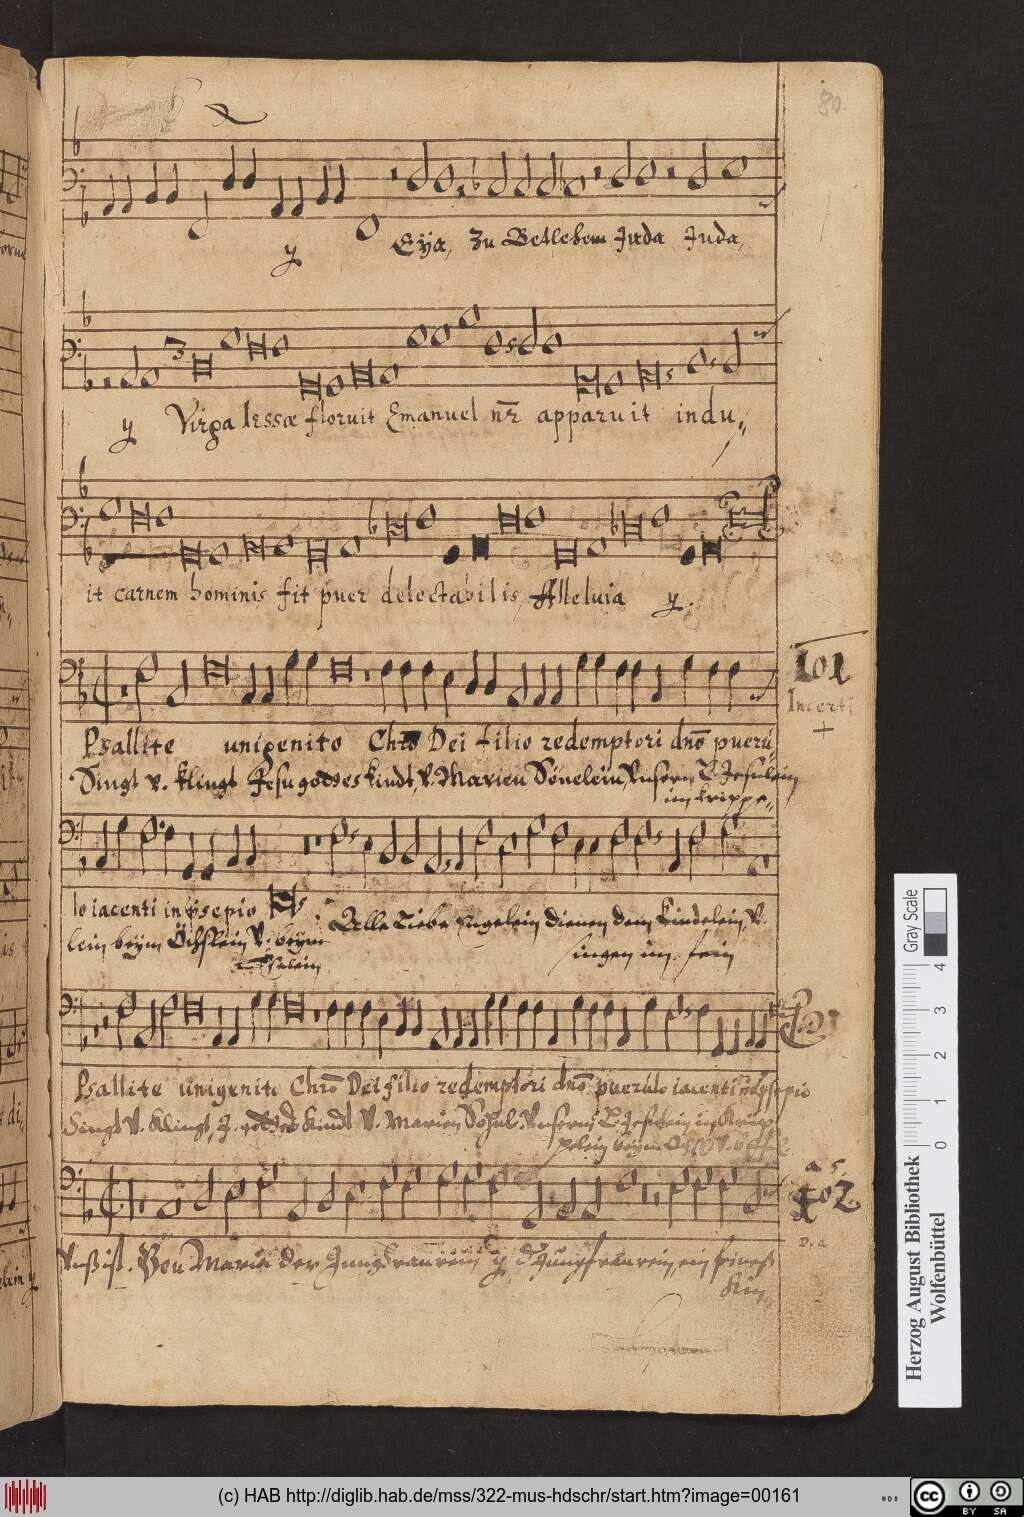 80
y
Eÿa, Zu Betlehem Juda Juda,
y Virga Iessæ floruit Emanuel nr̃ apparuit indu„
it carnem hominis fit puer delectabilis, Alleluia y.
101
Incerti
+
Psallite unigenito Chr̃o Dei filio redemptori dn̄o puerū„
Singt v. klingt Jesu gottes kindt, v. Marien Sönelein, vnserm L. Jesulein
im krippe„
lo iacenti in p̄sepio
lein beÿm Öchslein v. beÿm
Eselein
Alle Liebe Engelein dienen dem kindelein, v.
singen im fein
Psallite unigenito Chr̃o Dei filio redemptori dn̄o puerulo iacenti in p̄sepio
Singt v. Klingt, J. gottes kindt v. Marien Söhnl. vnserm L. Jesulein in Krip„
pelein beym
a 5.
102.
Vnß ist. Von Maria der Jungfrau rein y d Jungfrau rein, ein feines
Kin„
Herzog August Bibliothek
Wolfenbüttel
Gray Scale
0 1 2 3 4
(c) HAB http://diglib.hab.de/mss/322-mus-hdschr/start.htm?image=00161
cc BY SA